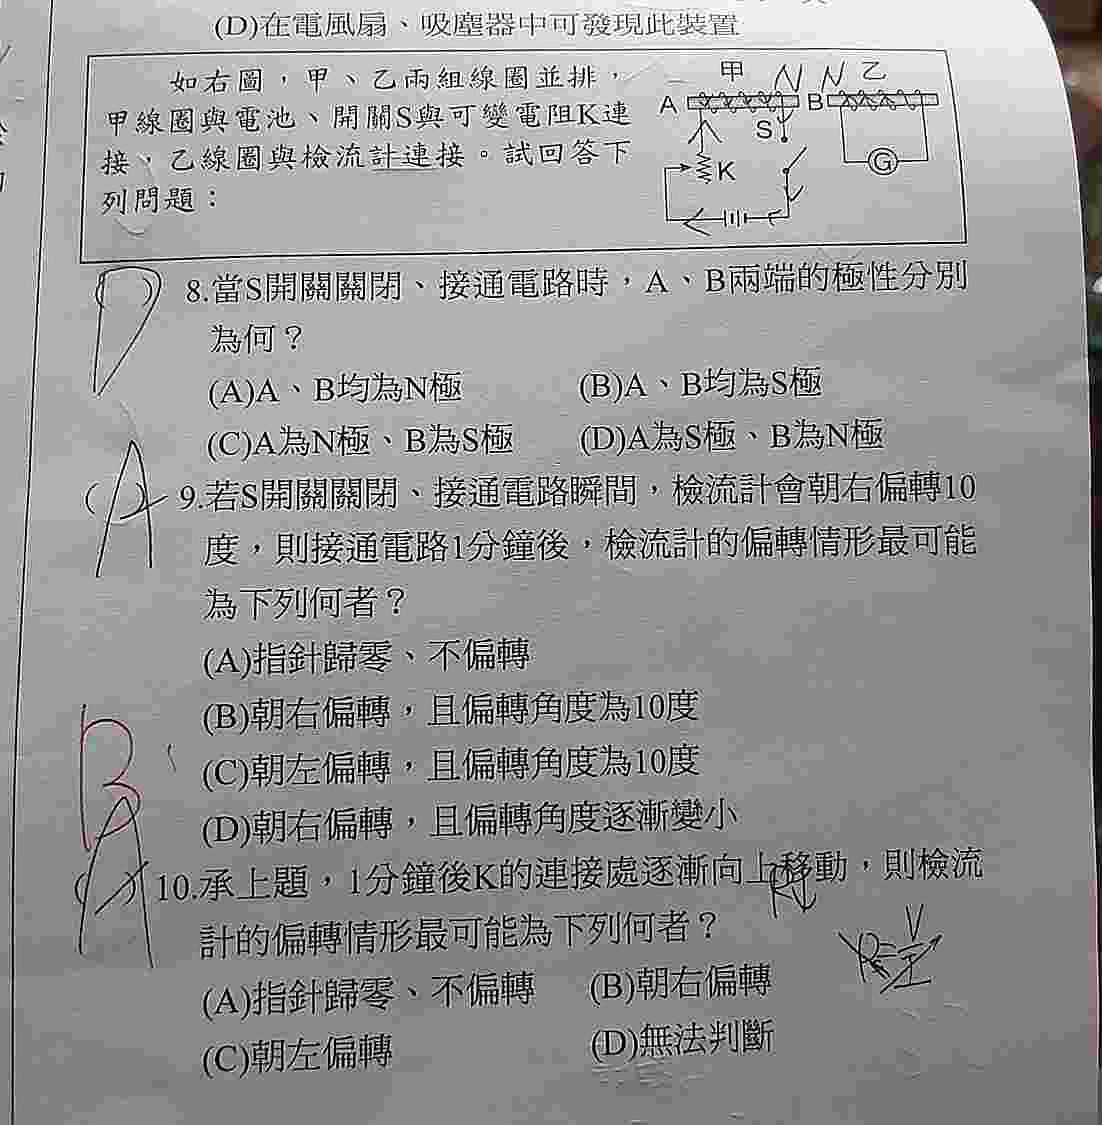 (D)在電風扇、吸塵器中可發現此裝置
如右圖，甲、乙兩組線圈並排，
甲線圈與電池、開關S與可變電阻K連
接、乙線圈與檢流計連接。試回答下
列問題：
甲 N N 乙
A B
S
K G
D
8.當S開關關閉、接通電路時，A、B兩端的極性分別
為何？
(A)A、B均為N極 (B)A、B均為S極
(C)A為N極、B為S極 (D)A為S極、B為N極
A
9.若S開關關閉、接通電路瞬間，檢流計會朝右偏轉10
度，則接通電路1分鐘後，檢流計的偏轉情形最可能
為下列何者？
(A)指針歸零、不偏轉
(B)朝右偏轉，且偏轉角度為10度
(C)朝左偏轉，且偏轉角度為10度
(D)朝右偏轉，且偏轉角度逐漸變小
B
A
10.承上題，1分鐘後K的連接處逐漸向上移動，則檢流
計的偏轉情形最可能為下列何者？
R↓
R=V/I
(A)指針歸零、不偏轉 (B)朝右偏轉
(C)朝左偏轉 (D)無法判斷